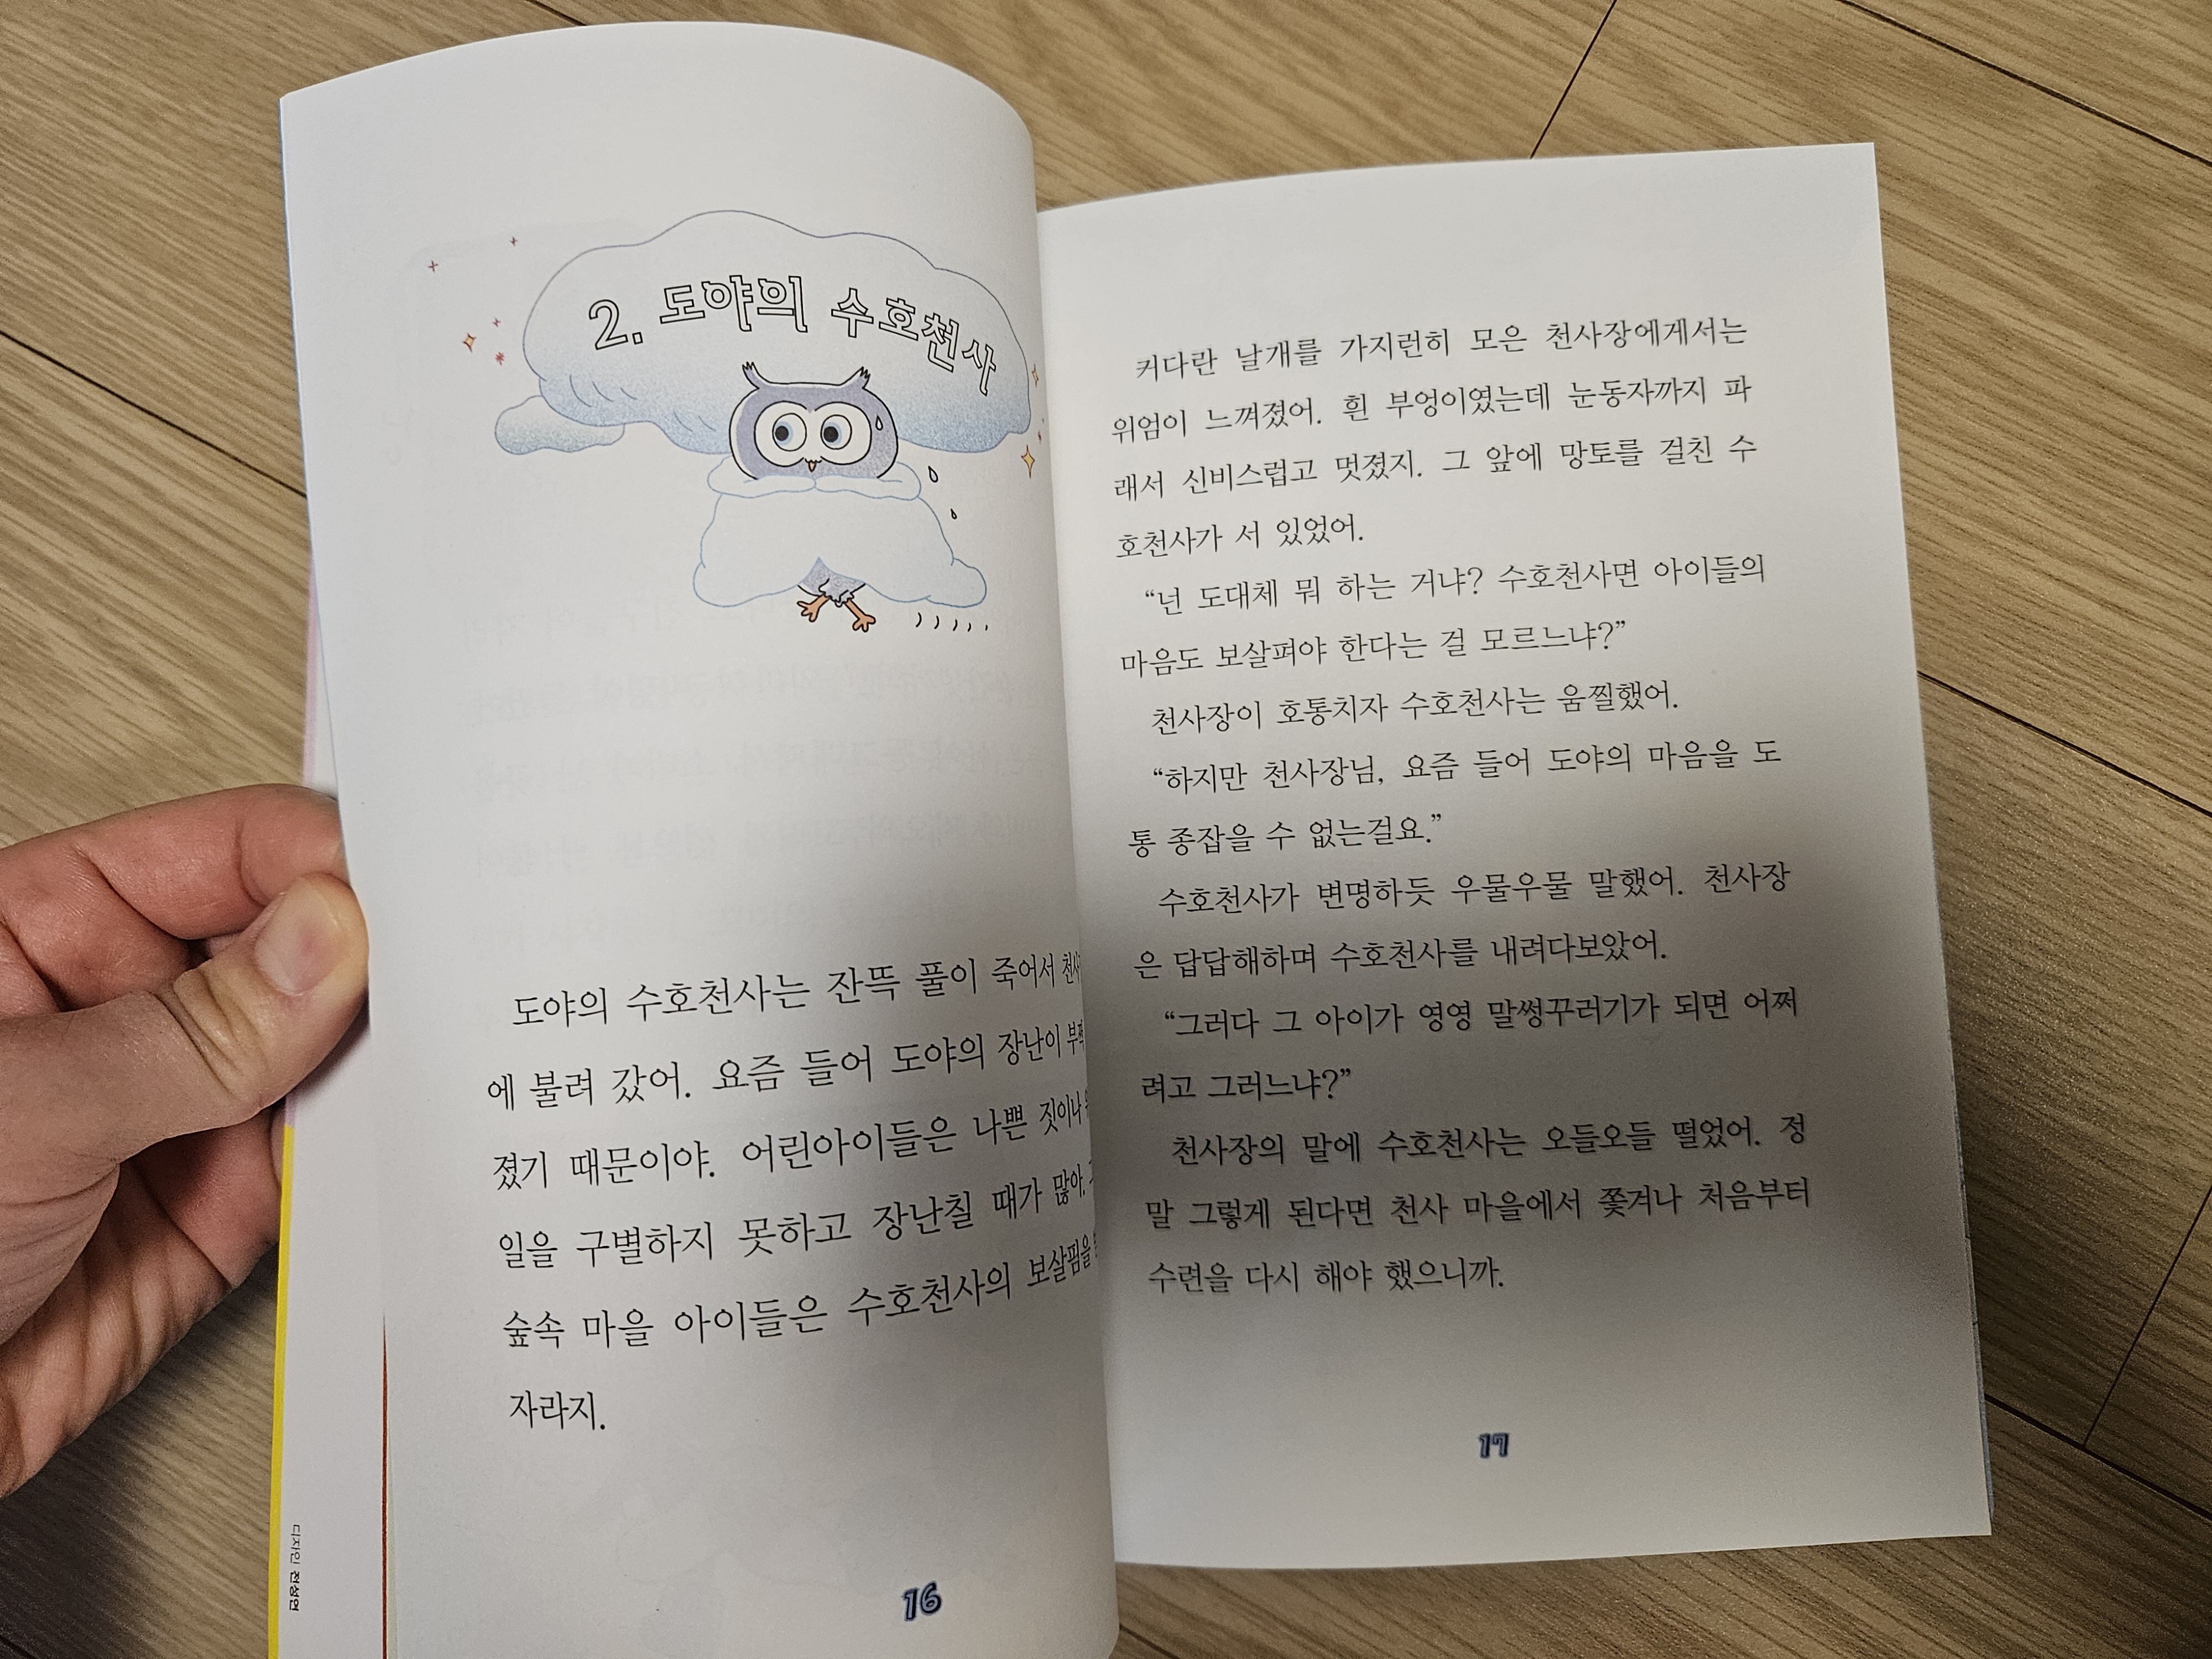 2. 도야의 수호천사
도야의 수호천사는 잔뜩 풀이 죽어서
에 불려 갔어. 요즘 들어 도야의 장난이
졌기 때문이야. 어린아이들은 나쁜 짓이나
일을 구별하지 못하고 장난칠 때가 많아.
숲속 마을 아이들은 수호천사의 보살핌을
자라지.
16
디자인 천성연
커다란 날개를 가지런히 모은 천사장에게서는
위엄이 느껴졌어. 흰 부엉이였는데 눈동자까지 파
래서 신비스럽고 멋졌지. 그 앞에 망토를 걸친 수
호천사가 서 있었어.
“넌 도대체 뭐 하는 거냐? 수호천사면 아이들의
마음도 보살펴야 한다는 걸 모르느냐?”
천사장이 호통치자 수호천사는 움찔했어.
“하지만 천사장님, 요즘 들어 도야의 마음을 도
통 종잡을 수 없는걸요.”
수호천사가 변명하듯 우물우물 말했어. 천사장
은 답답해하며 수호천사를 내려다보았어.
“그러다 그 아이가 영영 말썽꾸러기가 되면 어쩌
려고 그러느냐?”
천사장의 말에 수호천사는 오들오들 떨었어. 정
말 그렇게 된다면 천사 마을에서 쫓겨나 처음부터
수련을 다시 해야 했으니까.
17